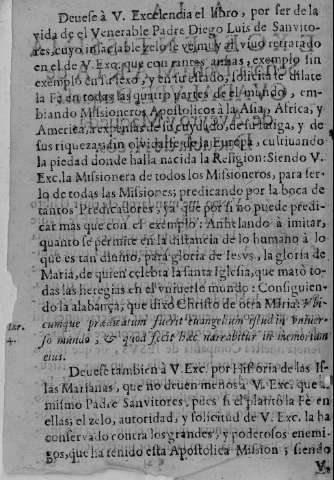 Deuese à V. Excelencia el libro, por ser de la
vida de el Venerable Padre Diego Luis de Sanvito-
res, cuyo insaciable zelo se ve muy al viuo retratado
en el de V. Exc. que con tantas ansias, exemplo sin
exemplo en su sexo, y en su estado, solicita se dilate
la Fè en todas las quatro partes de el mundo, em-
biando Missioneros Apostolicos à la Asia, Africa, y
America, à expensas de su cuydado, de su fatiga, y de
sus riquezas, sin olvidarse de la Europa, cultiuando
la piedad donde halla nacida la Religion: Siendo V.
Exc. la Missionera de todos los Missioneros, para ser-
lo de todas las Missiones; predicando por la boca de
tantos Predicadores, ya que por sì no puede predi-
car mas que con el exemplo: Anhelando à imitar,
quanto se permite en la distancia de lo humano à lo
que es tan diuino, para gloria de Iesvs, la gloria de
Maria, de quien celebra la santa Iglesia, que matò to-
das las heregias en el vniuerso mundo: Consiguien-
do la alabança, que dixo Christo de otra Maria: Vbi-
cumque prædicatum fuerit euangelium istud in vniuer-
so mundo, & quod fecit hæc narrabitur in memoriam
4.
eius.
Deuese tambien à V. Exc. por Historia de las Is-
las Marianas, que no deuen menos à V. Exc. que al
mismo Padre Sanvitores, pues si èl plantò la Fè en
ellas; el zelo, autoridad, y solicitud de V. Exc. la ha
conservado contra los grandes, y poderosos enemi-
gos, que ha tenido esta Apostolica Mission; siendo
V.